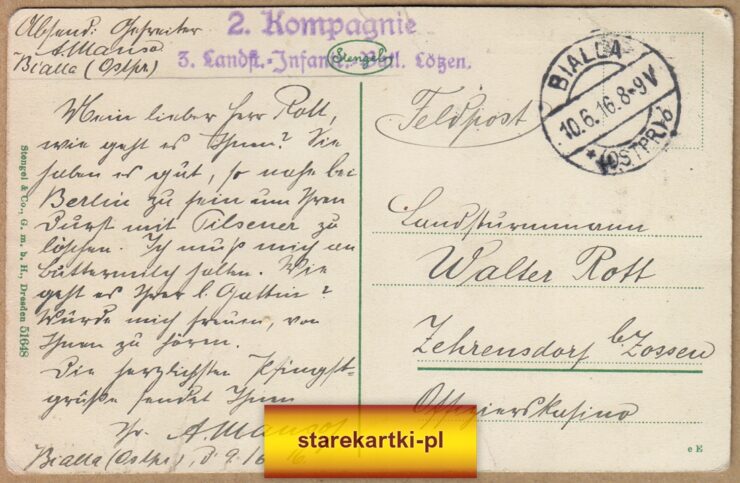 Absend: Gefreiter
A. Manso
Bialla (Ostpr)
2. Kompagnie
3. Landst.-Infant.- Batl. Lötzen.
Stengel
Mein lieber Herr Rott,
wie geht es Ihnen? Sie
haben es gut, so nahe bei
Berlin zu sein um Ihren
Durst mit Pilsener zu
löschen. Ich muß mich an
Buttermilch halten. Wie
geht es Ihrer l. Gattin?
Würde mich freuen, von
Ihnen zu hören.
Die herzlichsten Pfingst-
grüße sendet Ihnen
Ihr A. Manso
Bialla (Ostpr), d 9./6 16.
Stengel & Co., G. m. b. H., Dresden 51648
Feldpost
BIALLA
10.6.16.8-9V
* (OSTPR.) b
Landsturmmann
Walter Rott
Zehrensdorf b. Zossen
Offizierskasino
e E
starekartki-pl